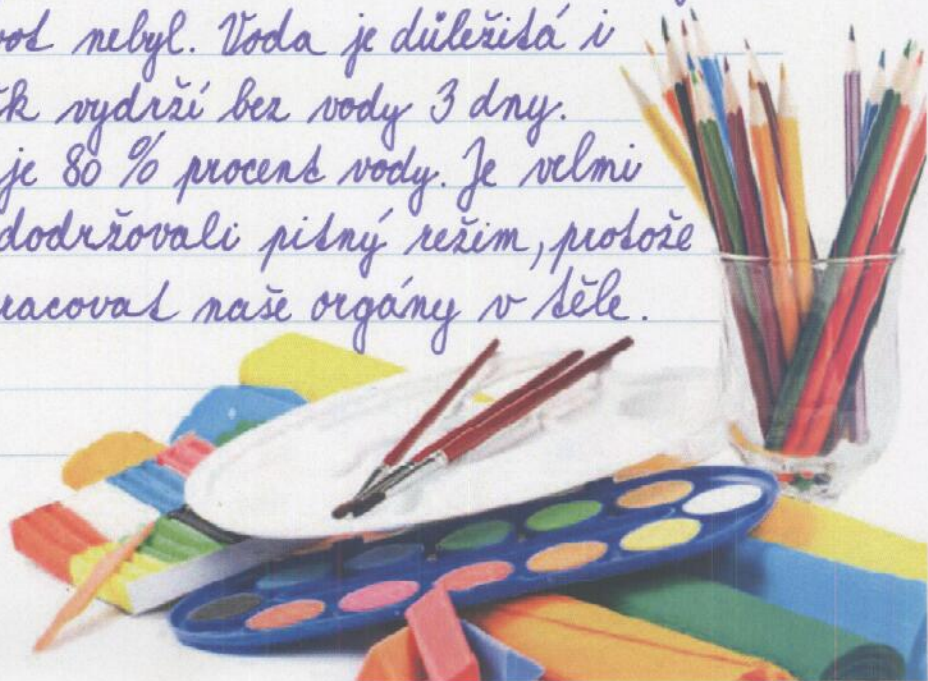 vot nebyl. Voda je důležitá i
k vydrží bez vody 3 dny.
je 80 % procent vody. Je velmi
dodržovali pitný režim, protože
racovat naše orgány v těle.